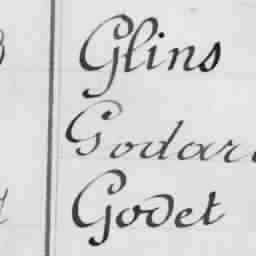 Glins
Godar
Godet